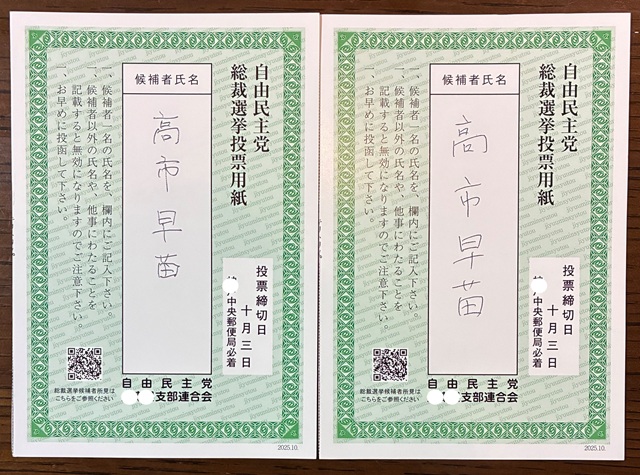 自由民主党
総裁選挙投票用紙
候補者氏名
高市早苗
一、候補者一名の氏名を、欄内にご記入下さい。
一、候補者以外の氏名や、他事にわたることを
記載すると無効になりますのでご注意下さい。
一、お早めに投函して下さい。
投票締切日
十月三日
中央郵便局必着
総裁選挙候補者所見は
こちらをご参照ください
自由民主党
支部連合会
2025.10.
自由民主党
総裁選挙投票用紙
候補者氏名
高市早苗
一、候補者一名の氏名を、欄内にご記入下さい。
一、候補者以外の氏名や、他事にわたることを
記載すると無効になりますのでご注意下さい。
一、お早めに投函して下さい。
投票締切日
十月三日
中央郵便局必着
総裁選挙候補者所見は
こちらをご参照ください
自由民主党
支部連合会
2025.10.